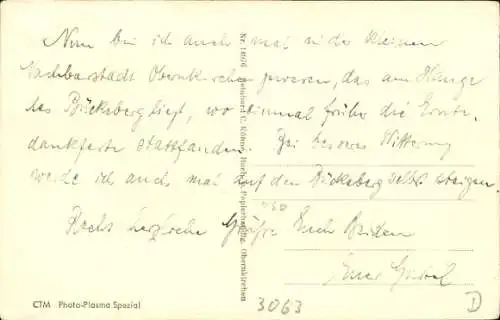 Nun bin ich auch mal in der kleinen
Nachbarstadt Obernkirchen gewesen, das am Hange
des Bückeberg liegt, wo einmal früher die Ernte-
dankfeste stattfanden. Bei besseres Witterung
werde ich auch mal auf den Bückeberg selbst steigen.
Recht herzliche Grüße Euch Beiden
Euer
Nr. 14976 Reinhard C. Köhne, Buch- u. Papierhdlg. Obernkirchen
CTM Photo-Plasma Spezial
3063
D